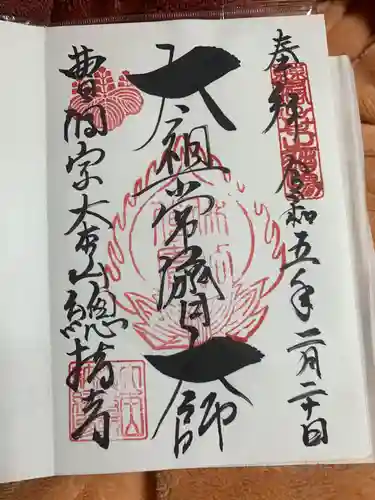 奉拝 令和五年二月二十日
太祖常済大師
曹洞宗大本山總持寺